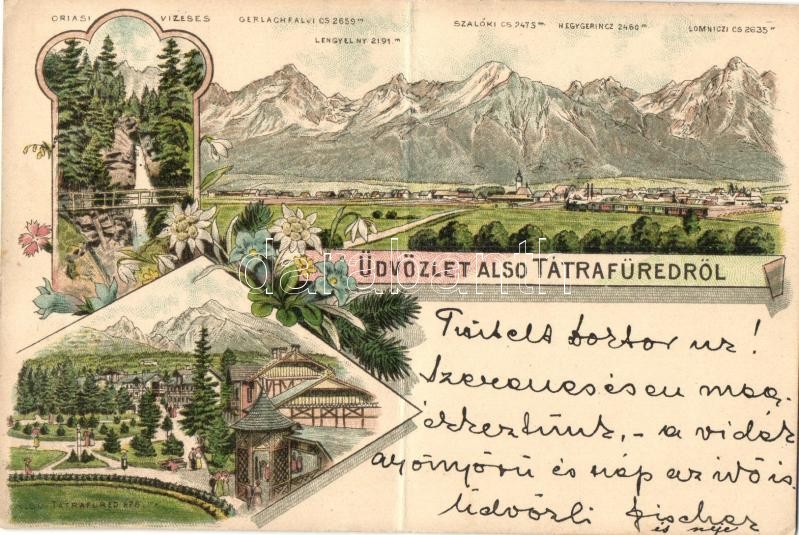 ORIASI VIZESES
GERLACHFALVI CS 2659 m
LENGYEL NY 2191 m
SZALÓKI CS. 2475 m
HEGYGERINCZ 2460 m
LOMNICZI CS 2635 m
ÜDVÖZLET ALSO TÁTRAFÜREDRÖL
darabanth
Tisztelt Doctor ur!
Szerencsésen meg-
érkeztünk, - a vidék
gyönyörü és nép az idő is.
Üdvözli Fischer
és neje
TATRAFÜRED 876